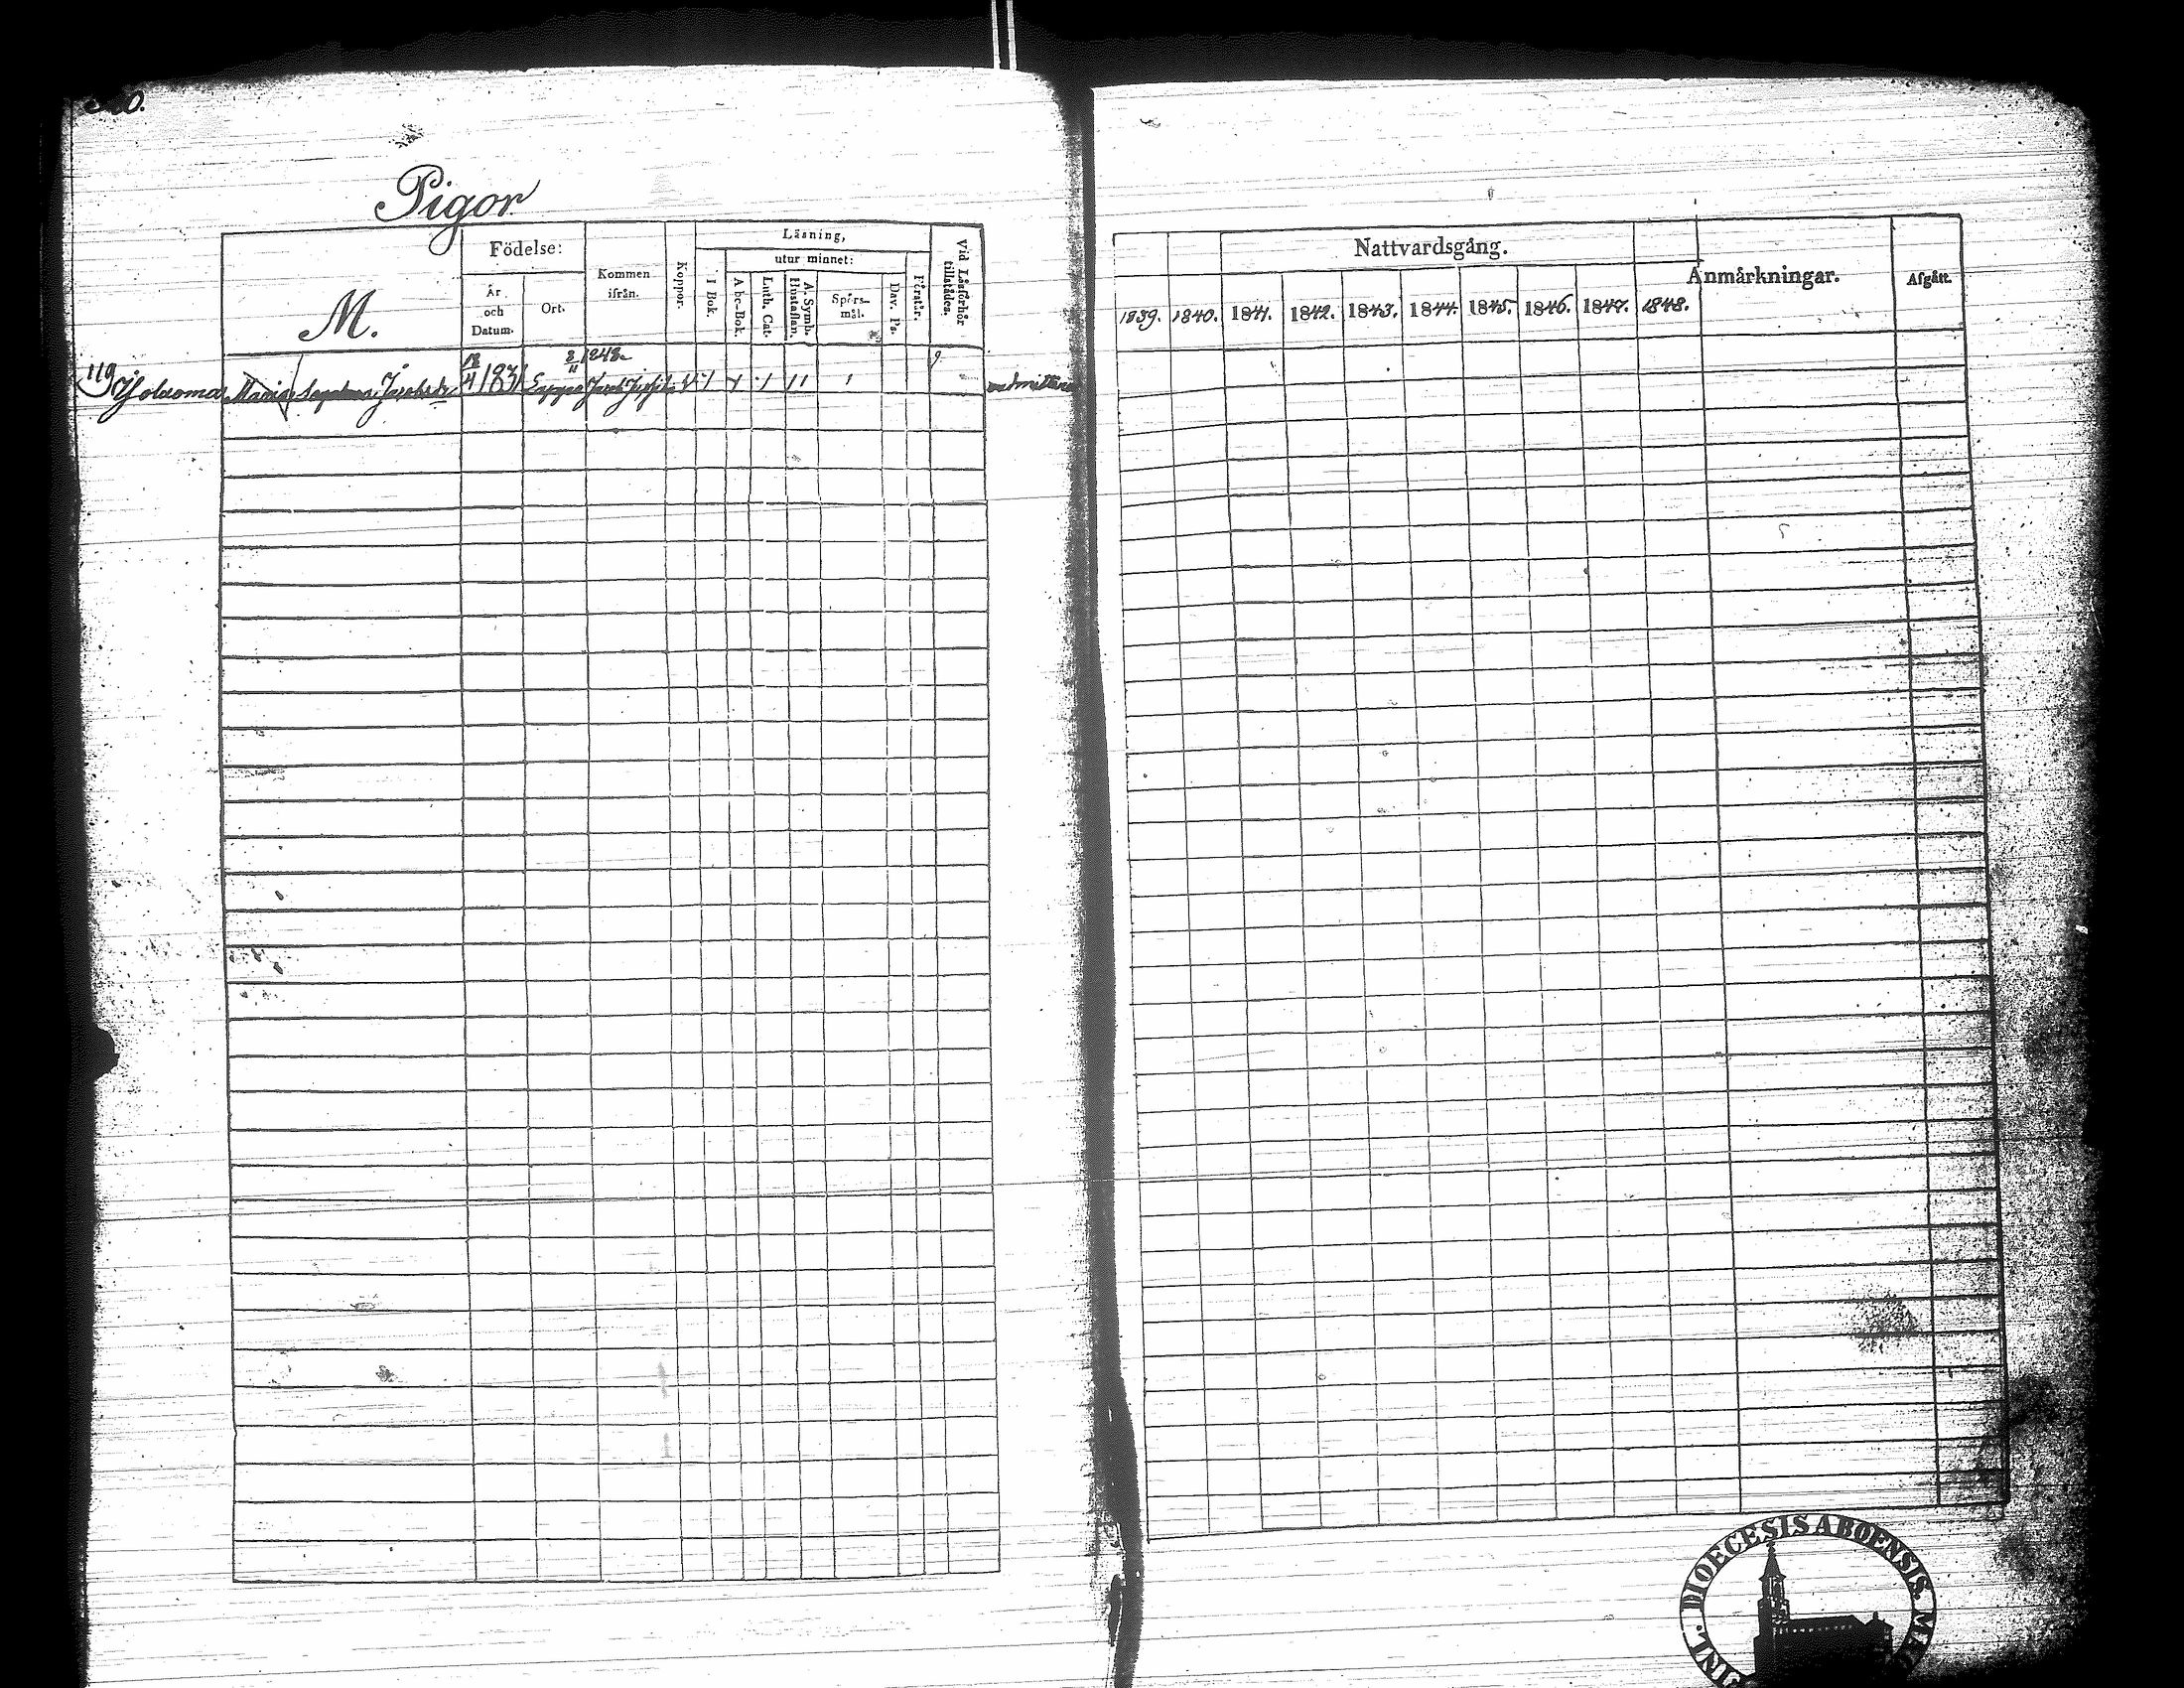 Pigor
M.
Födelse:
År och Datum.
Ort.
Kommen ifrån.
Koppor.
Läsning,
I Bok.
utur minnet:
A be-Bok.
Luth. Cat.
A. Symb. Hustaflan.
Spörs-mål.
Dav. Ps.
Förstår.
Vid Läsförhör tillstådes.
119 Maria Jacobsdr 1831
Nattvardsgång.
Anmärkningar.
Afgått.
1839. 1840. 1841. 1842. 1843. 1844. 1845. 1846. 1847. 1848.
DIOECESIS ABOENSIS.